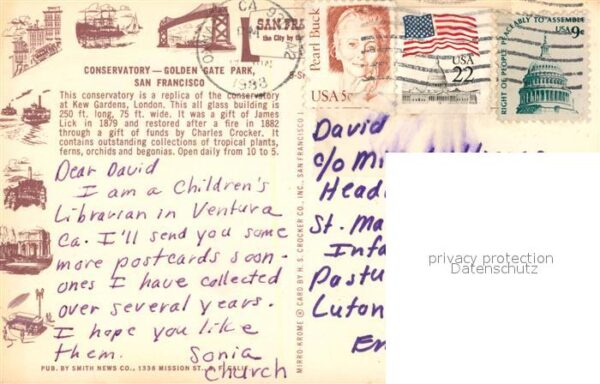 SAN FRA
the City by the
CONSERVATORY — GOLDEN GATE PARK,
SAN FRANCISCO
This conservatory is a replica of the conservatory
at Kew Gardens, London. This all glass building is
250 ft. long, 75 ft. wide. It was a gift of James
Lick in 1879 and restored after a fire in 1882
through a gift of funds by Charles Crocker. It
contains outstanding collections of tropical plants,
ferns, orchids and begonias. Open daily from 10 to 5.
Dear David
I am a Children's
Librarian in Ventura
Ca. I'll send you some
more postcards soon-
ones I have collected
over several years.
I hope you like
them. Sonia
Church
PUB. BY SMITH NEWS CO., 1336 MISSION ST., S. F. CALIF.
MIRRO-KROME ® CARD BY H. S. CROCKER CO., INC., SAN FRANCISCO
CA
PM
1988
Pearl Buck
USA 5c
USA
22
RIGHT OF PEOPLE PEACEABLY TO ASSEMBLE
USA 9c
David
c/o Mi
Head
St. Ma
Infa
Pastu
Luton
En
privacy protection
Datenschutz